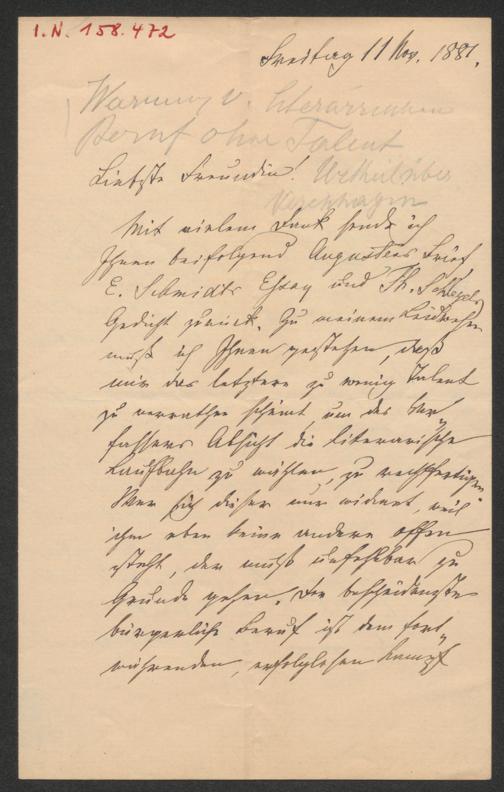 I.N. 158.472
Freitag 11 Nov. 1881.
Warnung v. literarischem
Beruf ohne Talent
Liebste Freundin! Urtheil über
Mit vielem Dank sende ich
Ihnen beifolgend Brief
E. Schmidts Essay und Th.
Gedicht zurück. Zu meinem Leidwesen
muß ich Ihnen gestehen, daß
mir das letztere zu wenig Talent
zu verrathen scheint, um des Ver„
fassers Absicht die literarische
Laufbahn zu wählen, zu rechtfertigen.
Wer sich dieser nur widmet, weil
ihm eben keine andere offen
steht, der muß unfehlbar zu
Grunde gehen. Der bescheidenste
bürgerliche Beruf ist dem fort„
währenden, erfolglosen Kampf